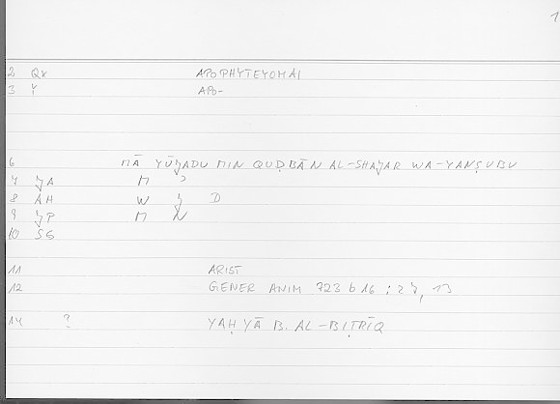 1
2 Qx APOPHYTEYOMAI
3 APO-
6 MĀ YŪʒADU MIN QUḌBĀN AL-SHAʒAR WA-YANṢUBU
7 ʒA M
8 AH W ʒ D
9 ʒP M N
10 SS
11 ARIST
12 GENER ANIM 723 b 16 : 27, 13
14 ? YAḤYĀ B. AL-BIṬRĪQ